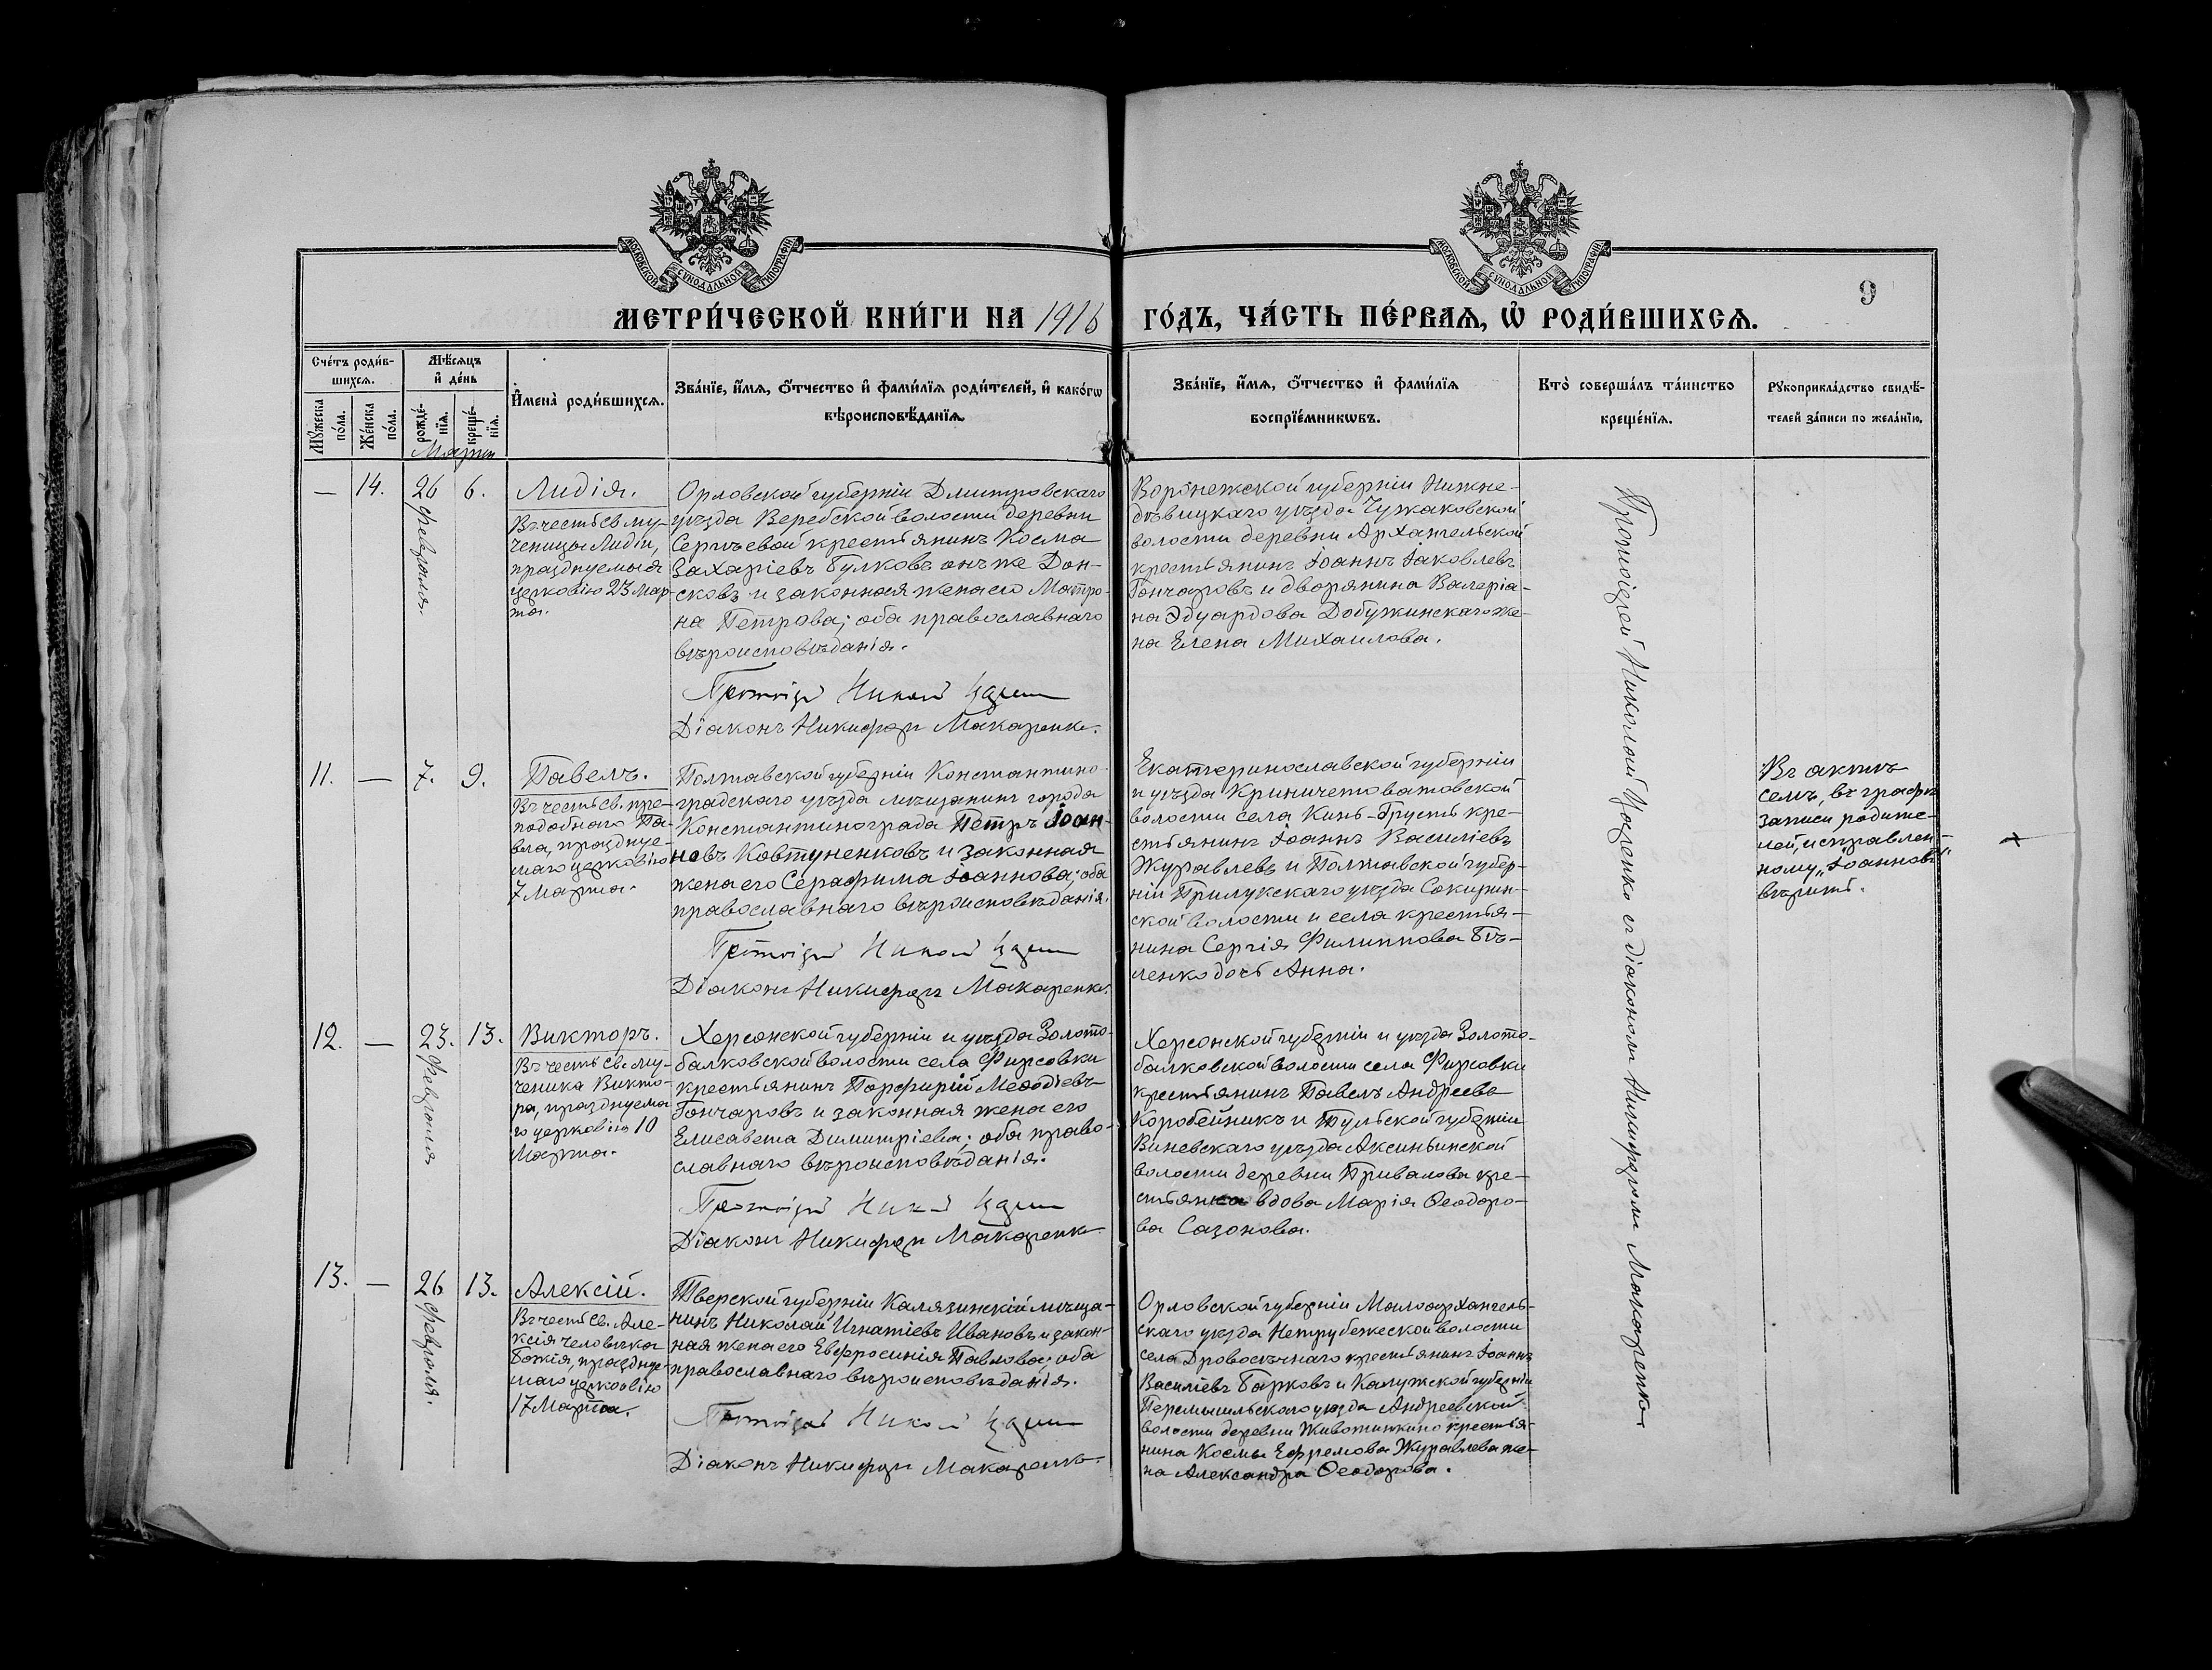 МОСКОВСКОЙ СѴНОДАЛЬНОЙ ТИПОГРАФІИ
МОСКОВСКОЙ СѴНОДАЛЬНОЙ ТИПОГРАФІИ
9
МЕТРИ́ЧЕСКОЙ КНИ́ГИ НА 1916 ГО́ДЪ, ЧА́СТЬ ПЕ́РВАЯ, Ѡ҆ РОДИ́ВШИХСЯ.
Сче́тъ роди́в-
шихся.
Мꙋ́жеска по́ла.
Же́нска по́ла.
Мѣ́сяцъ
и҆ де́нь
рожде́-
нїя.
креще́-
нїя.
И҆мена̀ роди́вшихся.
Зва́нїе, и҆́мя, ѻ҆́тчество и҆ фами́лїя роди́телей, и҆ како́гѡ
вѣроисповѣ́данїя.
Зва́нїе, и҆́мя, ѻ҆́тчество и҆ фами́лїя
воспрїе́мникѡвъ.
Кто̀ соверша́лъ та́инство
креще́нїя.
Рꙋкоприкла́дство свидѣ́-
телей за́писи по жела́нїю.
Марта
— 14. 26 февраля. 6.
Лидія.
Въ честь св. му-
ченицы Лидіи,
празднуемыя
церковію 23 мар-
та.
Орловской губерніи Дмитровскаго
уѣзда Веребской волости деревни
крестьянинъ Косма
Захаріевъ Булковъ онъ же Дон-
сковъ и законная жена его Матро-
на Петрова; оба православнаго
вѣроисповѣданія.
Діаконъ Никифоръ Макаренко.
Воронежской губерніи Нижне-
дѣвицкаго уѣзда Чужаковской
волости деревни Архангельской
крестьянинъ Іоаннъ Іаковлевъ
Гончаровъ и дворянина Валеріа-
на Эдуардова Добужинскаго же-
на Елена Михаилова.
Протоіерей Николай Царенко съ діакономъ Никифоромъ Макаренко
11. — 7. 9.
Павелъ.
Въ честь св. пре-
подобнаго Па-
вла, праздуе-
маго церковію
7 Марта.
Полтавской губерніи Константино-
градскаго уѣзда мѣщанинъ города
Константинограда Петръ Іоан-
новъ Ковтуненковъ и законная
жена его Серафима Іоаннова; оба
православнаго вѣроисповѣданія.
Діаконъ Никифоръ Макаренко.
Екатеринославской губерніи
и уѣзда Криничеватовской
волости села Кинь-Грусть кре-
стьянинъ Іоаннъ Василіевъ
Журавлевъ и Полтавской губер-
ніи Прилукскаго уѣзда Сокирин-
ской волости и села крестья-
нина Сергія Филиппова Бѣ-
ленко дочь Анна.
Въ актѣ
семъ, въ графѣ
записи родите-
лей, исправлен-
ному „Іоанновъ“
вѣрить.
12. — 23. Февраля 13.
Викторъ.
Въ честь св. му-
ченика Викто-
ра, празднуема
го церковію 10
Марта.
Херсонской губерніи и уѣзда Золото-
балковской волости села Фирсовки
крестьянинъ Порфирій Меѳодіевъ
Гончаровъ и законная жена его
Елисавета Димитріева; оба право-
славнаго вѣроисповѣданія.
Діаконъ Никифоръ Макаренко.
Херсонской губерніи и уѣзда Золото-
балковской волости села Фирсовки
крестьянинъ Павелъ Андреевъ
Коробейникъ и Тульской губерніи
Веневскаго уѣзда Аксиньинской
волости деревни Привалова кре-
стьянка вдова Марія Ѳеодоро-
ва Сазонова.
13. — 26 Февраля. 13.
Алексій.
Въ честь св. Але-
ксія человѣка
Божія, праздуе-
маго церковію
17 Марта.
Тверской губерніи Калязинскій мѣща-
нинъ Николай Игнатіевъ Ивановъ и закон-
ная жена его Евфросинія Павлова; оба
православнаго вѣроисповѣданія.
Діаконъ Никифоръ Макаренко.
Орловской губерніи Малоархангель-
скаго уѣзда волости
села Дровосѣчнаго крестьянинъ Іоаннъ
Василіевъ Барковъ и Калужской губерніи
Перемышльскаго уѣзда Андреевской
волости деревни Животинкино крестья-
нина Космы Ефремова Журавлева же-
на Александра Ѳеодорова.